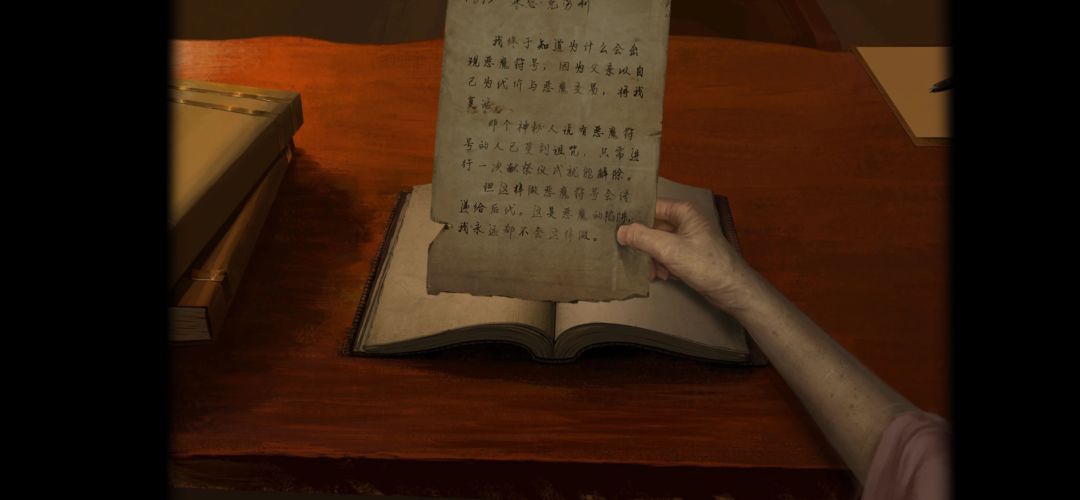 我终于知道为什么会出
现恶魔符号，因为父亲以自
己为代价与恶魔交易，将我
复活。
那个神秘人说有恶魔符
号的人已受到诅咒，只需进
行一次献祭仪式就能解除。
但这样做恶魔符号会传
递给后代。这是恶魔的陷阱，
我永远都不会这样做。